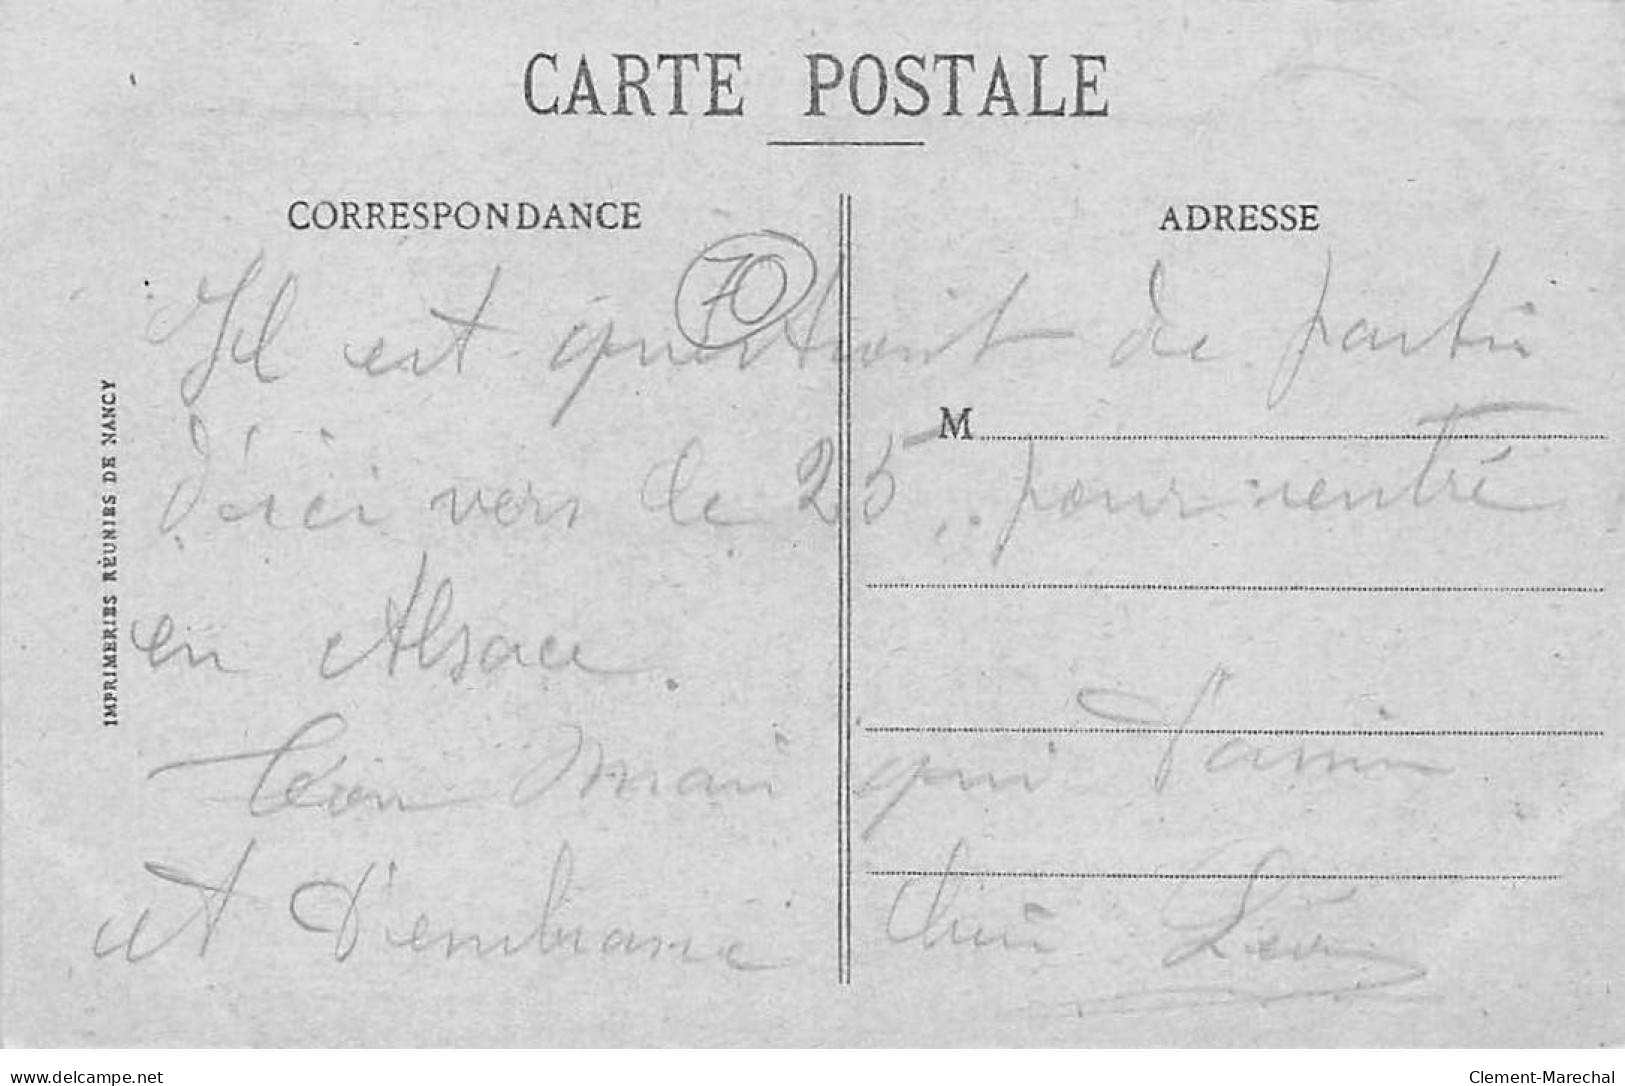 CARTE POSTALE
CORRESPONDANCE
ADRESSE
70
Il est question de partir
M
d'ici vers le 25 pour rentré
en Alsace.
Ton mari qui t'aime
et t'embrasse chéri Léon
IMPRIMERIES RÉUNIES DE NANCY
www.delcampe.net
Clement-Marechal